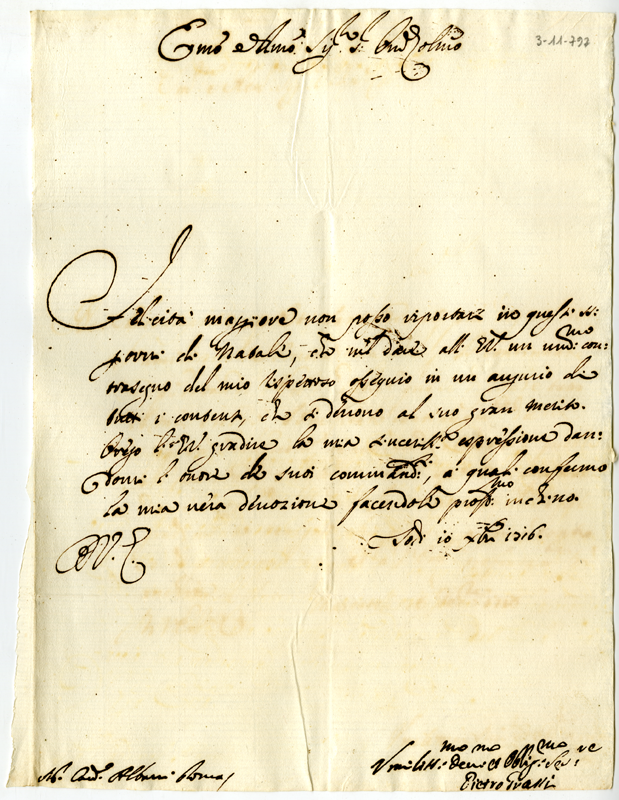 Em̃o e Rmõ Sig.r S.r Prõn Colmo
3-11-797
Felicità maggiore non posso riportare in questi SS.
giorni di Natale, che nel dare all' E.V. un umil.mo con:
trasegno del mio rispettoso ossequio in un augurio di
tutti i contenti, che si devono al suo gran merito.
Prego l' E.V. gradire la mia sinceriss.a espressione dan:
domi l' onore de suoi commandi, a quali confermo
la mia vera devozione facendole prof.mo inchino.
Lodi 10 Xbre 1716.
D.V.E.
Sr. Card. Albani Roma
Umiliss.mo Dev.mo et Obblig.mo Ser.re
Pietro